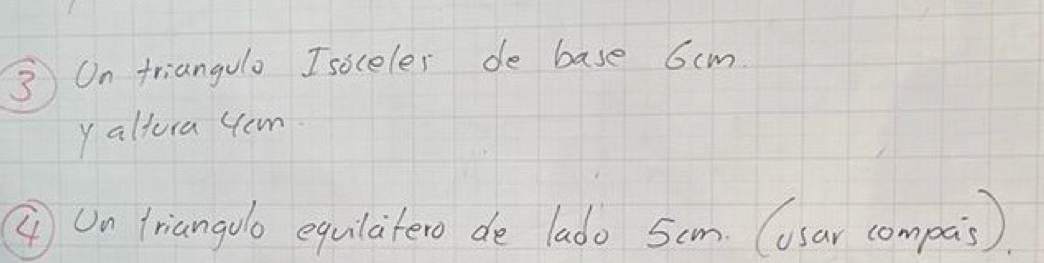 3 Un triangulo Isóceles de base 6cm.
y altura 4cm.
4 Un triangulo equilátero de lado 5cm. (usar compás).